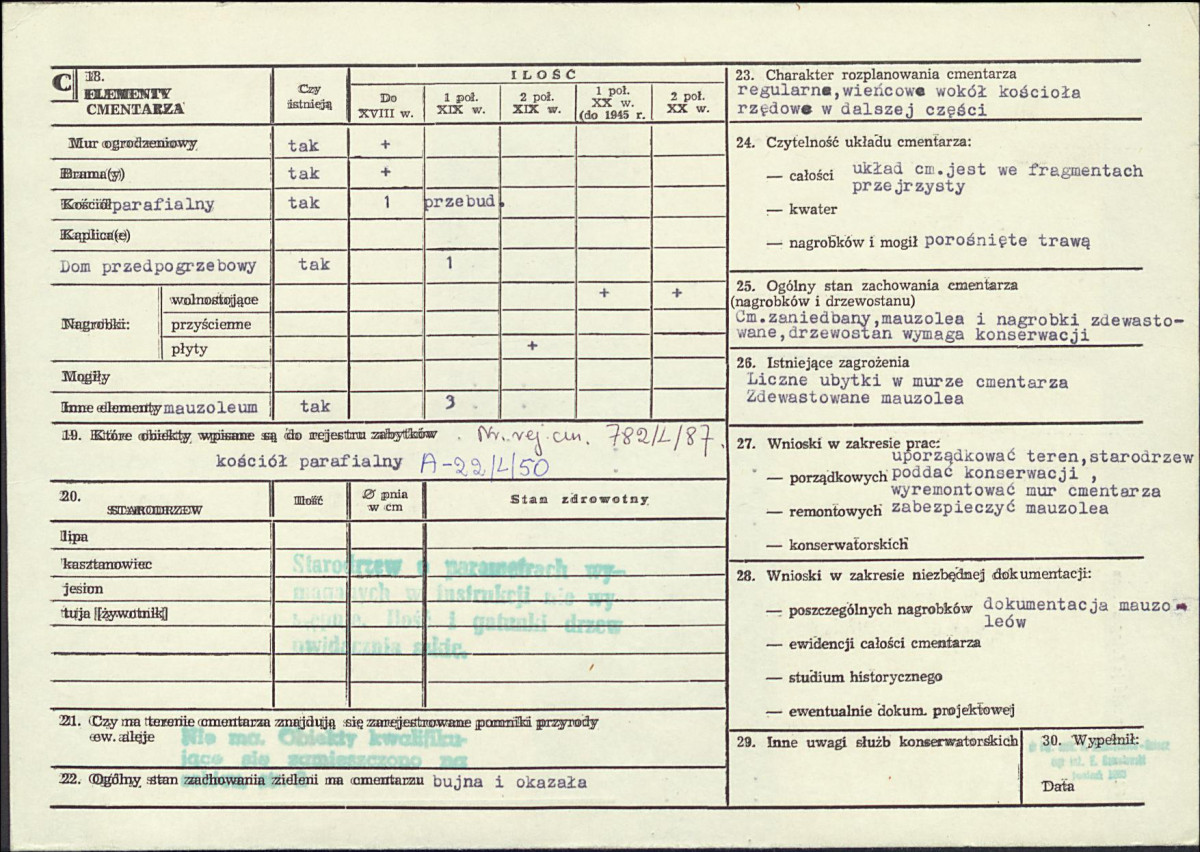 C 18.
ELEMENTY
CMENTARZA
Czy
istnieją
ILOŚĆ
Do
XVIII w.
1 poł.
XIX w.
2 poł.
XIX w.
1 poł.
XX w.
(do 1945 r.
2 poł.
XX w.
Mur ogrodzeniowy tak +
Brama(y) tak +
Kościół parafialny tak 1 przebud.
Kaplica(e)
Dom przedpogrzebowy tak 1
Nagrobki:
wolnostojące + +
przyścienne
płyty +
Mogiły
Inne elementy mauzoleum tak 3
19. Które obiekty wpisane są do rejestru zabytków . Nr. rej. cm. 782/L/87.
kościół parafialny A-22/L/50
20.
STARODRZEW
Ilość
Ø pnia
w cm
Stan zdrowotny
lipa
kasztanowiec
jesion
tuja [żywotnik]
Starodrzew o parametrach wy-
maganych w instrukcji nie wy-
Ilość i gatunki drzew
21. Czy na terenie cmentarza znajdują się zarejestrowane pomniki przyrody
ew. aleje
Nie ma. Obiekty kwalifiku-
jące się zamieszczono na
22. Ogólny stan zachowania zieleni na cmentarzu bujna i okazała
23. Charakter rozplanowania cmentarza
regularne,wieńcowe wokół kościoła
rzędowe w dalszej części
24. Czytelność układu cmentarza:
— całości układ cm.jest we fragmentach
przejrzysty
— kwater
— nagrobków i mogił porośnięte trawą
25. Ogólny stan zachowania cmentarza
(nagrobków i drzewostanu)
Cm.zaniedbany,mauzolea i nagrobki zdewasto-
wane,drzewostan wymaga konserwacji
26. Istniejące zagrożenia
Liczne ubytki w murze cmentarza
Zdewastowane mauzolea
27. Wnioski w zakresie prac:
uporządkować teren,starodrzew
— porządkowych poddać konserwacji ,
wyremontować mur cmentarza
— remontowych zabezpieczyć mauzolea
— konserwatorskich
28. Wnioski w zakresie niezbędnej dokumentacji:
— poszczególnych nagrobków dokumentacja mauzo-
leów
— ewidencji całości cmentarza
— studium historycznego
— ewentualnie dokum. projektowej
29. Inne uwagi służb konserwatorskich
30. Wypełnił:
Data